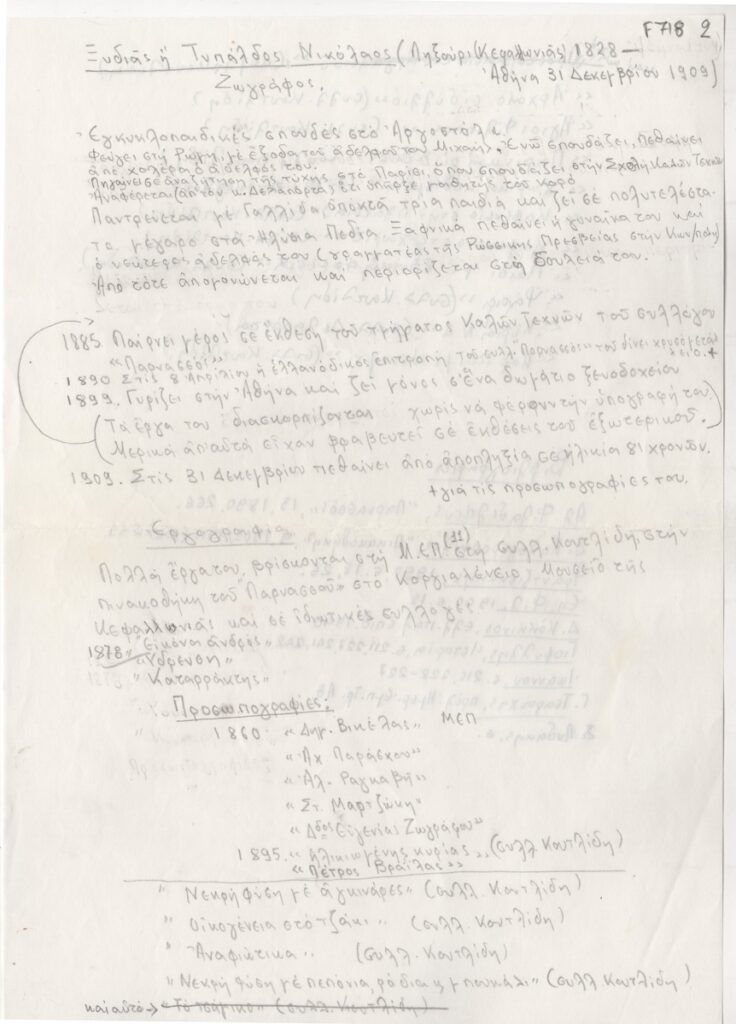 F 718 2
Ξυδιᾶς ἤ Τυπάλδος Νικόλαος (Ληξούρι (Κεφαλλονιᾶς) 1828 —
Ζωγράφος. Ἀθήνα 31 Δεκεμβρίου 1909)
Ἐγκυκλοπαιδικές σπουδές στό Ἀργοστόλι.
Φεύγει στή Ρώμη, μέ ἔξοδα τοῦ ἀδελφοῦ του Μιχαήλ, Ἐνῶ σπουδάζει, πεθαίνει
ἀπό χολέρα ὁ ἀδελφός του.
Πηγαίνει σέ ἀναζήτηση τῆς τύχης στό Παρίσι, ὅπου σπουδάζει στήν Σχολή Καλῶν Τεχνῶν
Ἀναφέρεται (ἀπ' τόν κ. Δελαπόρτα) ὅτι ὑπῆρξε μαθητής τοῦ Κορό
Παντρεύεται μέ Γαλλίδα, ἀποκτᾶ τρία παιδιά καί ζεῖ σέ πολυτελέστα-
το μέγαρο στά Ἠλύσια Πεδία. Ξαφνικά πεθαίνει ἡ γυναίκα του καί
ὁ νεώτερος ἀδελφός του (γραμματέας τῆς Ρωσσικῆς Πρεσβείας στήν Κων/πολη)
Ἀπό τότε ἀπομονώνεται καί περιορίζεται στή δουλειά του.
1885 Παίρνει μέρος σέ ἔκθεση τοῦ τμήματος Καλῶν Τεχνῶν τοῦ συλλόγου
"Παρνασσός"
1890 Στίς 8 Ἀπριλίου ἡ ἑλλανόδικος ἐπιτροπή τοῦ συλλ. "Παρνασσός" τοῦ δίνει χρυσό μετάλ
λειο. +
1899. Γυρίζει στήν Ἀθήνα καί ζεῖ μόνος σ' ἕνα δωμάτιο ξενοδοχείου
(Τά ἔργα του διασκορπίζονται χωρίς νά φέρουν τήν ὑπογραφή του.
Μερικά ἀπ' αὐτά εἶχαν βραβευτεῖ σέ ἐκθέσεις τοῦ ἐξωτερικοῦ.)
1909. Στίς 31 Δεκεμβρίου πεθαίνει ἀπό ἀποπληξία σέ ἡλικία 81 χρονῶν.
+ γιά τίς προσωπογραφίες του.
Ἐργογραφία
Πολλά ἔργα του, βρίσκονται στή Μ.ΕΠ (11) στή συλλ. Κουτλίδη, στήν
πινακοθήκη τοῦ "Παρνασσοῦ" στό Κοργιαλένειο Μουσεῖο τῆς
Κεφαλλονιᾶς καί σέ ἰδιωτικές συλλογές
1878 "Εἰκόνα ἀνδρός"
"Ὕδρευση"
"Καταρράκτης"
Προσωπογραφίες:
1860. "Δημ. Βικέλας" ΜΕΠ
"Ἀχ Παράσχου"
"Ἀλ. Ραγκαβῆ"
"Στ. Μαρτζώκη"
"Δδος Εὐγενίας Ζωγράφου"
1895. "ἡλικιωμένης κυρίας" (συλλ Κουτλίδη)
"Πέτρος Βράιλας"
"Νεκρή φύση μέ ἀγκινάρες" (συλλ. Κουτλίδη)
"Οἰκογένεια στό τζάκι" (συλλ. Κουτλίδη)
"Ἀναφιώτικα" (συλλ. Κουτλίδη)
"Νεκρή φύση μέ πεπόνια, ρόδια κ, μπουκάλι" (συλλ Κουτλίδη)
καί αὐτό → "Τό τσάμικο" (συλλ. Κουτλίδη)